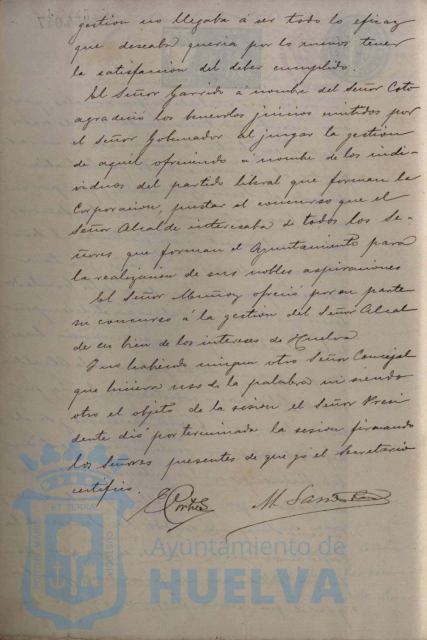 gestion no llegaba á ser todo lo eficaz
que deseaba queria por lo menos tener
la satisfacion del deber cumplido.
El Señor Garrido á nombre del Señor Coto
agradeció los benevolos juicios emitidos por
el Señor Gobernador al juzgar la gestión
de aquel ofreciendo á nombre de los indi-
viduos del partido liberal que forman la
Corporacion, prestar el concurso que el
Señor Alcalde interesaba de todos los Se-
ñores que forman el Ayuntamiento para
la realizacion de sus nobles aspiraciones
El Señor Muñoz ofreció por su parte
su concurso á la gestión del Señor Alcal
de en bien de los intereses de Huelva
Y no habiendo ningun otro Señor Concejal
que hiciera uso de la palabra ni siendo
otro el objeto de la sesion el Señor Presi
dente dió por terminada la sesion firmando
los Señores presentes de que yó el Secretario
certifico.
Ayuntamiento de
HUELVA